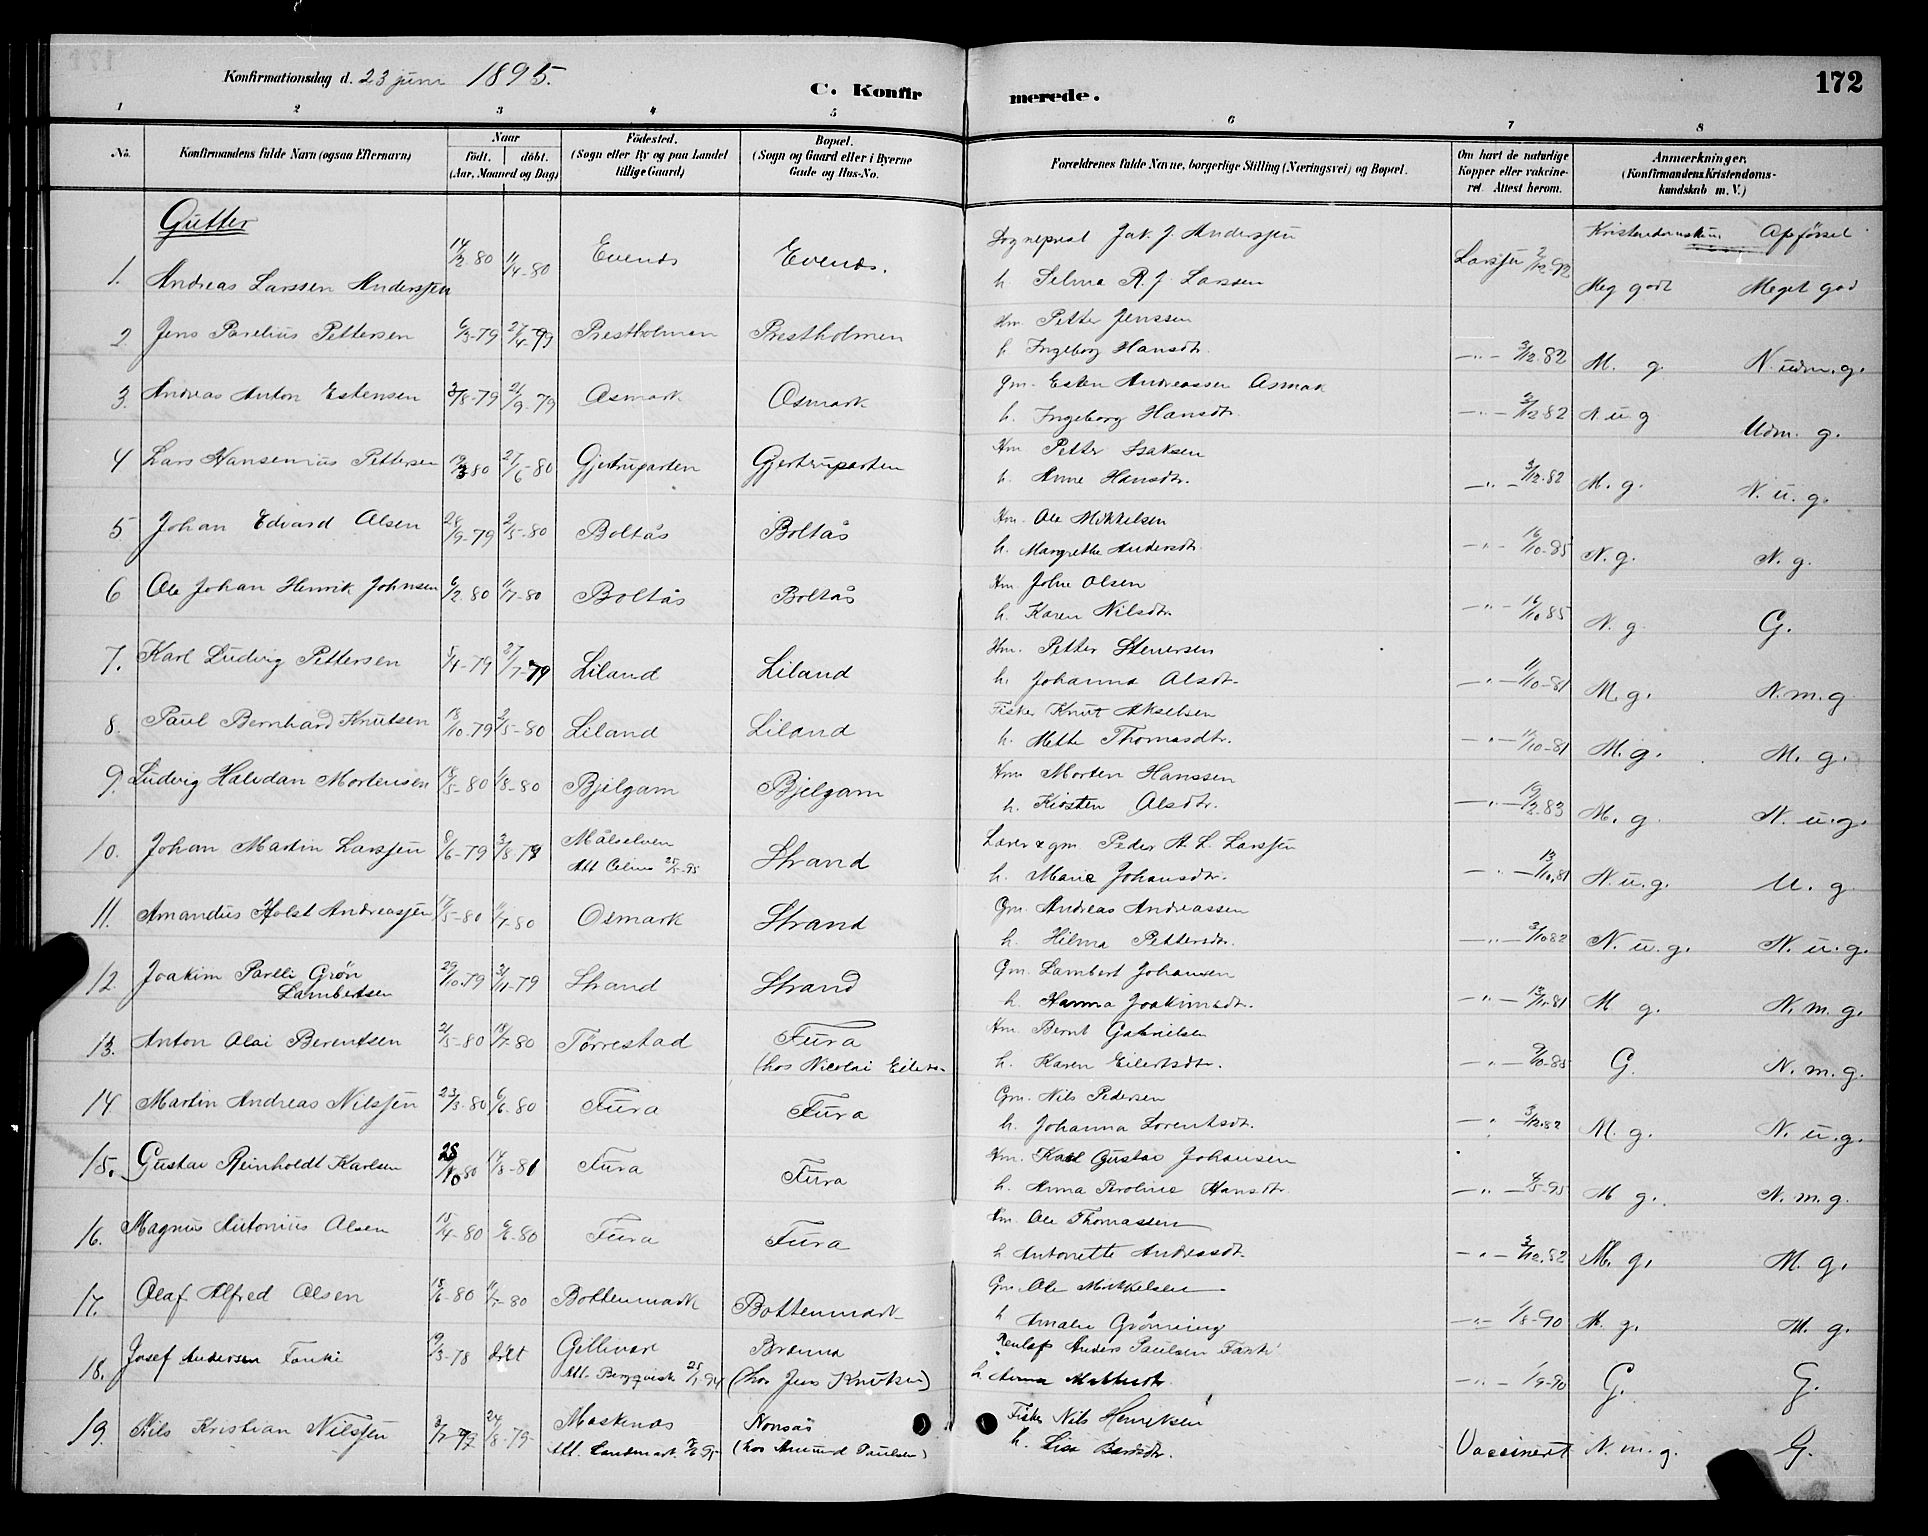 Konfirmationsdag d. 23 juni 1895.
C. Konfirmerede.
172
1 2 3 4 5 6 7 8
No. Konfirmandens fulde Navn (ogsaa Efternavn) Naar födt. döbt. (Aar, Maaned og Dag) Födested. (Sogn eller By og paa Landet tillige Gaard) Bopæl. (Sogn og Gaard eller i Byerne Gade og Hus-No. Forældrenes fulde Navne, borgerlige Stilling (Næringsvei) og Bopæl. Om havt de naturlige Kopper eller vakcineret. Attest herom. Anmærkninger. (Konfirmandens Kristendomskundskab m. V.)
Gutter
Kristendomskun Opförsel
1. Andreas Larssen Andersjen 14/2-80 11/4-80 Evenes Evenes. Sognepræst Jak. J. Andersjen
h. Selma R. J. Larssen Larsjen 2/12-92 Meg godt Meget god
2 Jens Parelius Pettersen 6/3-79 27/4-79 Prestholmen Prestholmen Hm. Petter Jenssen
h. Ingeborg Hansdtr. —"— 3/12.82 M. g. N. udm. g.
3. Andreas Anton Estensen 3/8-79 21/9-79 Osmark Osmark Gm. Esten Andreassen Osmark
h. Ingeborg Hansdtr. —"— 3/12 82 N. u g. Udm. g.
4 Lars Hansenius Pettersen 19/3 80 27/6-80 Gjertruparten Gjertruparten Hm Petter Isaksen
h. Anne Hansdtr. —"— 3/12.82 M. g. N. u. g.
5 Johan Edvard Olsen 28/9-79 2/5-80 Boltås Boltås Hm. Ole Mikkelsen
h. Margrethe Andersdtr. —"— 16/10-85 N. g. N. g.
6 Ole Johan Henrik Johnsen 6/2.80 11/7-80 Boltås Boltås Hm. John Olsen
h. Karen Nilsdtr. —"— 16/10 85 N. g. G.
7. Karl Ludvig Pettersen 5/4-79 27/7-79 Liland Liland Hm. Petter Stenersen
h. Johanna Olsdt. —"— 11/10-81 M. g. N. m. g
8. Paul Bernhard Knutsen 18/10.79 2/5-80 Liland Liland Fisker Knut Akselsen
h. Mette Thomasdtr. —"— 11/10-81 M. g. M. g.
9. Ludvig Halvdan Mortensen 18/5-80 1/8-80 Bjelgam Bjelgam Hm Morten Hanssen
h. Kirsten Olsdtr. —"— 19/2.83 M. g. N. u. g.
10. Johan Martin Larsjen 8/6-79 3/8-79 Målselven
Att Celius 27/5-95 Strand Lærer & gm. Peder A. L. Larsjen
h. Marie Johansdtr. —"— 13/10.81 N. u. g. M. g.
11. Amandus Holst Andreasjen 17/5-80 11/7-80 Osmark Strand Gm. Andreas Andreassen
h. Hilma Pettersdtr. —"— 3/10 82 N. u. g. N. u. g.
12. Joakim Parelli Grön
Lambertsen 29/10.79 31/11-79 Strand Strand Gm. Lambert Johansen
h. Hanna Joakimsdtr. —"— 13/10-81 M g. N. m. g.
13. Anton Olai Berentsen 21/5-80 18/7-80 Tørrestad Fura
(hos Nicolai Eilerts. Hm. Bernt Gabrielsen
h. Karen Eilertsdtr. —"— 9/10-85 G. N. m. g.
14 Martin Andreas Nilsjen 23/3-80 6/6-80 Fura Fura Gm. Nils Pedersen
h. Johanna Lorentsdt. —"— 3/12.82 M. g. N. u. g.
15. Gustav Reinholdt Karlsen 28/10 80 17/3-81 Fura Fura Hm. Karl Gustav Johansen
h. Anna Peroline Hansdtr. —"— M g. N. m. g.
16. Magnus Antonius Olsen 15/4-80 6/6-80 Fura Fura Hm. Ole Thomassen
h Antonette Andreasdt. —"— 3/12.82 M. g. M. g.
17. Olaf Alfred Olsen 18/6-80 11/7-80 Bottenmark Bottenmark Gm. Ole Mikkelsen
h Amalie Grönning —"— 1/8-90 M. g. M. g.
18. Josef Andersen Fanki 9/3-78 Gellivare
Att. Bergqvist 25/1-94 Brenna
(hos Jens Knutsen) Renlap Anders Paulsen Fank
h. Anna —"— 1/9-90 G. G.
19. Nils Kristian Nilsjen 24/8-79 Moskenæs
Att. Landmark. Nonsås
(hos Amund Paulsen) Fisker Nils Henriksen
h. Lisa Vaccinert N. m. g. G.